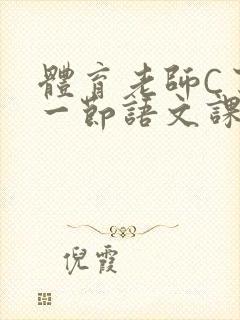 體育老師C
一節語文課
倪霞